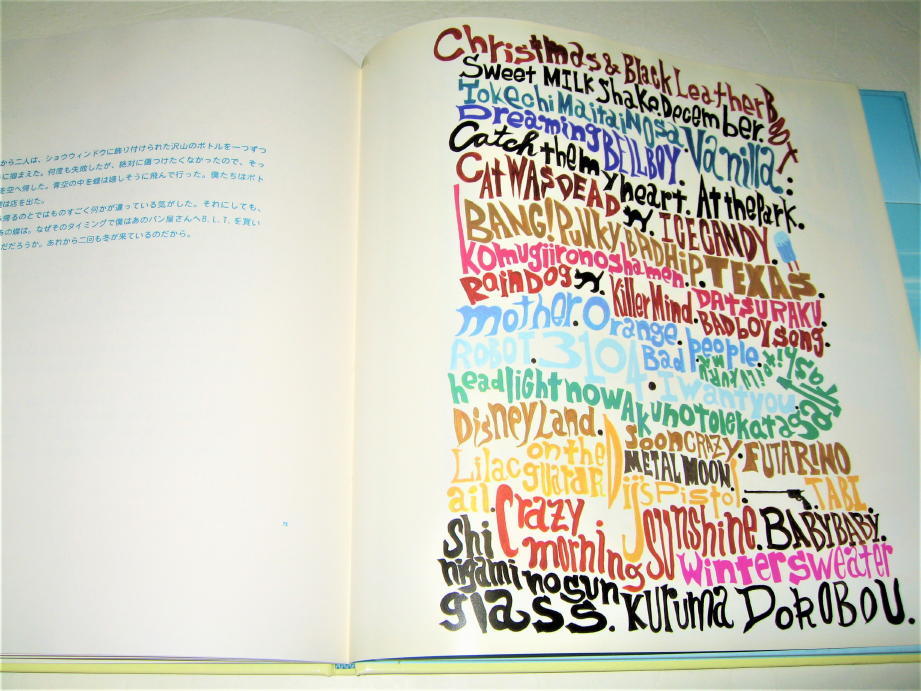 から二人は、ショウウィンドウに飾り付けられた沢山のボトルを一つずつ
に掴まえた。何度も失敗したが、絶対に傷つけたくなかったので、そっ
を空へ帰した。青空の中を蝶は嬉しそうに飛んで行った。僕たちはボト
は店を出た。
帰るのとではものすごく何かが違っている気がした。それにしても、
の蝶は。なぜそのタイミングで僕はあのパン屋さんへB.L.T.を買い
だろうか。あれから二回も冬が来ているのだから。
Christmas & Black Leather Boot.
Sweet MILK Shake. December.
Tokechi Maitai No Sa. Vanilla.
Dreaming BELLBOY.
Catch the my heart. At the Park.
CAT WAS DEAD. ICE CANDY.
BANG! Punky BADHiP. TEXAS.
Komugiironoshamen.
RainDog. Killer Mind. DATSURAKU.
mother. Orange. BAD boy song.
ROBOT. 3104. Bad people.
I want you.
headlight now Akuno to lekatagally
Disney Land. Soon CRAZY. FUTARINO
Lilac on the guardrail. METAL MOON. TABI.
Dj's Pistol.
Crazy morning. Sunshine. BABY BABY.
Shinigami no sunglass. Winter sweater
Kuruma DOROBOU.